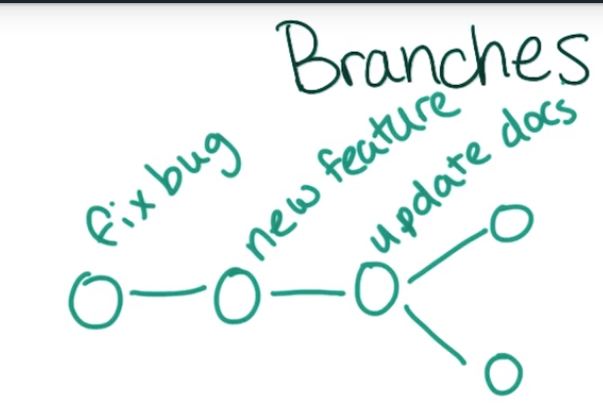 Branches
fix bug
new feature
update docs